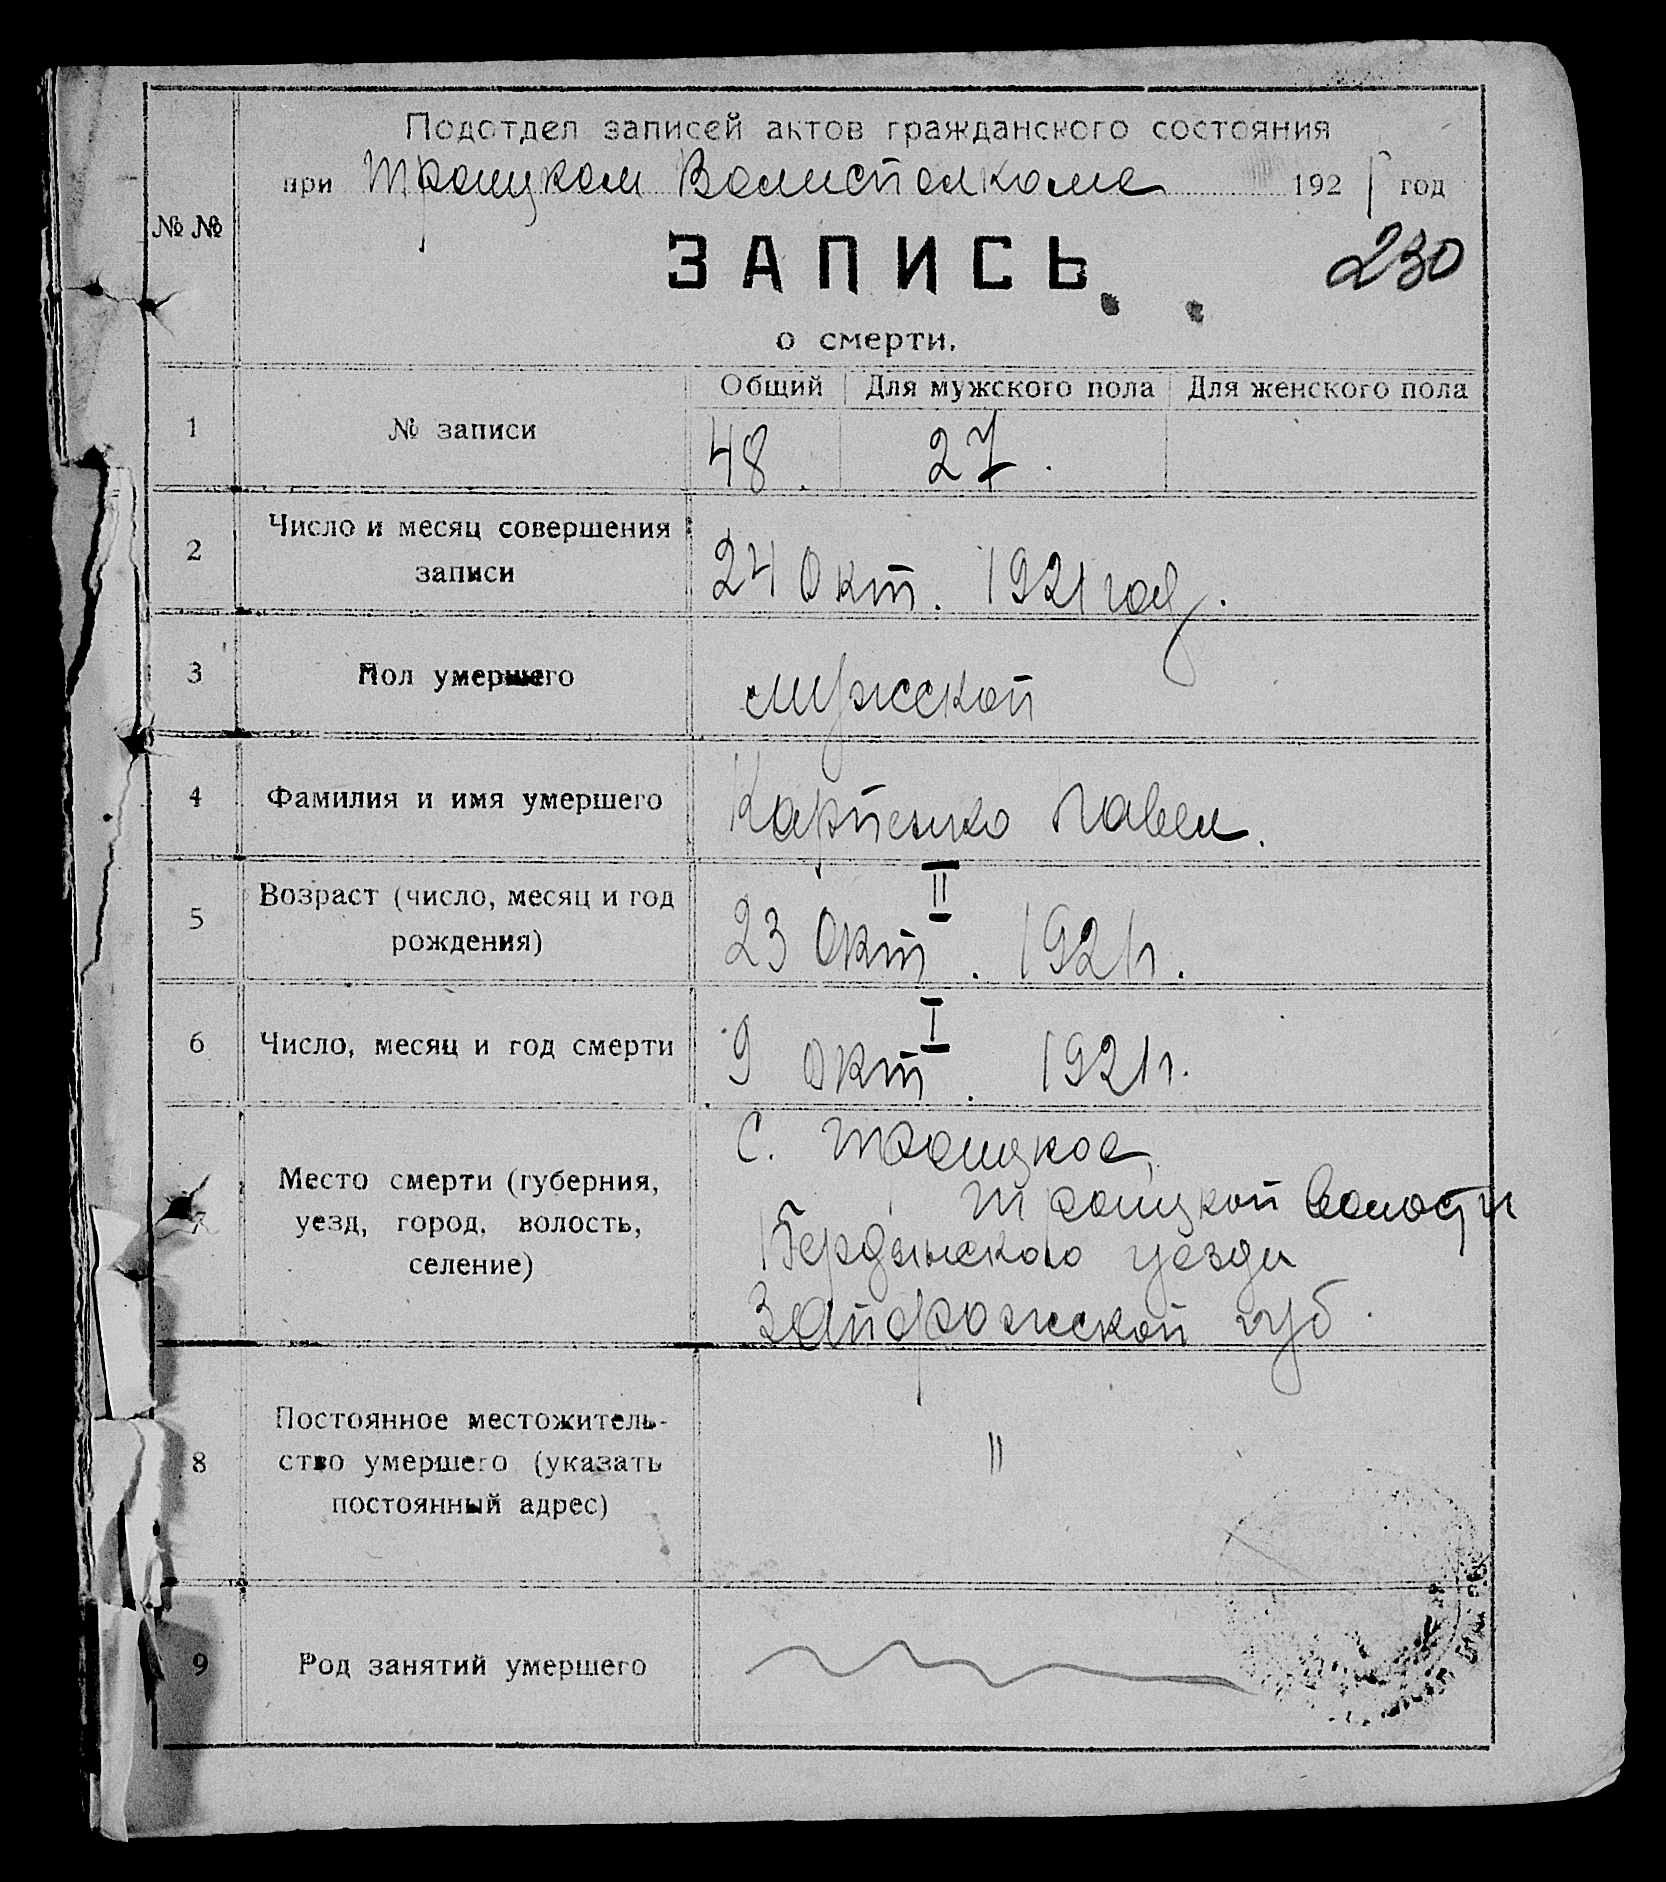 Подотдел записей актов гражданского состояния
при Троицком Волисполкоме 1921 год
№ №
ЗАПИСЬ
230
о смерти.
Общий Для мужского пола Для женского пола
1 № записи 48. 27.
2 Число и месяц совершения
записи 24 Окт. 1921 год.
3 Пол умершего мужской
4 Фамилия и имя умершего Карпенко Павел.
5 Возраст (число, месяц и год
рождения) 23 Окт. II 1921 г.
6 Число, месяц и год смерти 9 Окт. I 1921 г.
7 Место смерти (губерния,
уезд, город, волость,
селение)
с. Троицкое,
Троицкой Волости
Бердянского уезда
Запорожской губ.
8 Постоянное местожитель-
ство умершего (указать
постоянный адрес)
"
9 Род занятий умершего